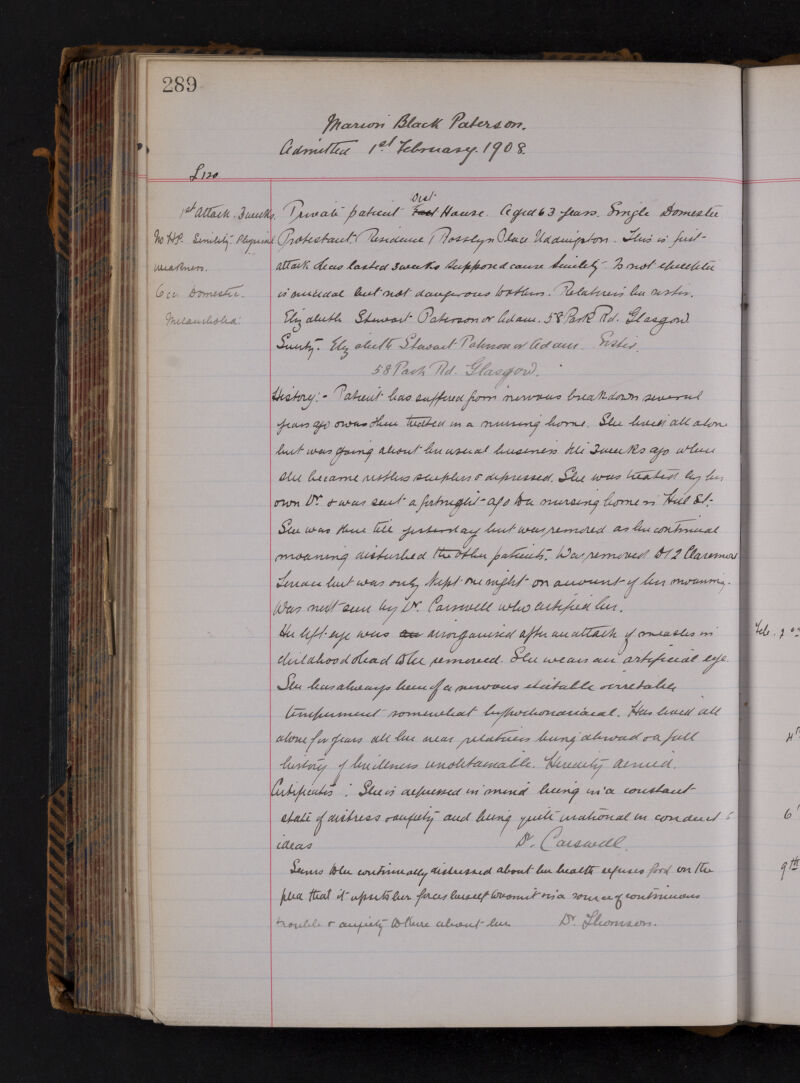 289
Marion Black Paterson.
Admitted 1st February. 1908.
£120
1st Attack. 3 weeks.
No H.P. Senility Physical
weakness.
Ca Domestic.
Melancholia.
Private patient East West House. Aged 63 years. Single Domestic
Protestant. Residence 1 Rosslyn Place Uddingston. This is first
attack & has lasted 3 weeks supposed cause Senility. Is not epileptic
is suicidal but not dangerous to others. Relative is her sister.
Elizabeth Stewart Paterson or Adam. 58 Park Rd. Glasgow
Surety. Elizabeth Stewart Paterson or Adam Sister.
58 Park Rd. Glasgow.
History:- Patient has suffered from nervous breakdown several
years ago & was then treated in a nursing home. She lives all alone
but was going about her usual business till 3 weeks ago when
she became restless sleepless & depressed. She was treated by her
own Dr. & was sent a fortnight ago to a nursing home in Hill St.
She was there till yesterday but was removed as her continual
moaning disturbed the other patients. Was removed to 2 Claremont
Terrace but was only kept one night on account of her moaning.
Was next seen by Dr. Carswell who certified her.
Her left eye was disorganised after an attack of measles in
childhood & had to be removed. She wears an artificial eye.
She has always been of a nervous excitable & irritable
temperament somewhat hypochondriacal. Has lived all
alone for years all her near relatives being abroad & a full
history of her illness unobtainable. Heredity denied.
Certificates: She is depressed in mind being in a constant
state of distress & anxiety and being quite irrational in conduct &
ideas Dr. Carswell.
Seems to be continually distressed about her health refuses food on the
plea that it upsets her forces herself to vomit & is a source of continuous
trouble & anxiety to those about her Dr. Thomson.
Feb. 2nd
4th
6th
9th